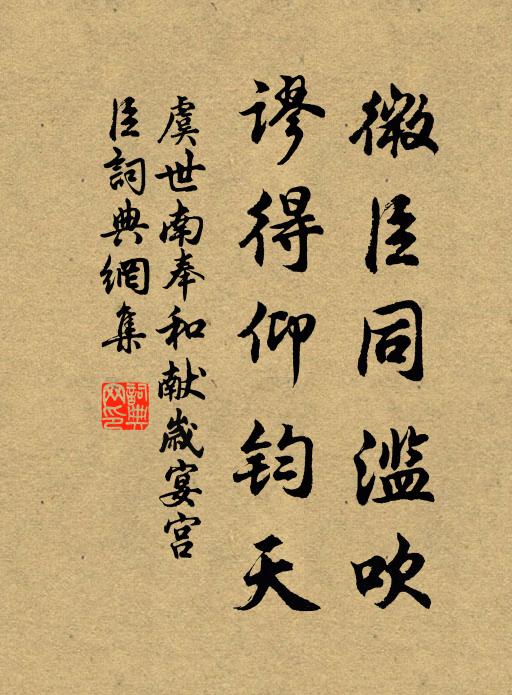 微臣同滥吹
谬得仰钧天
虞世南奉和献歲宴宫
臣詞典網集
詞典网印